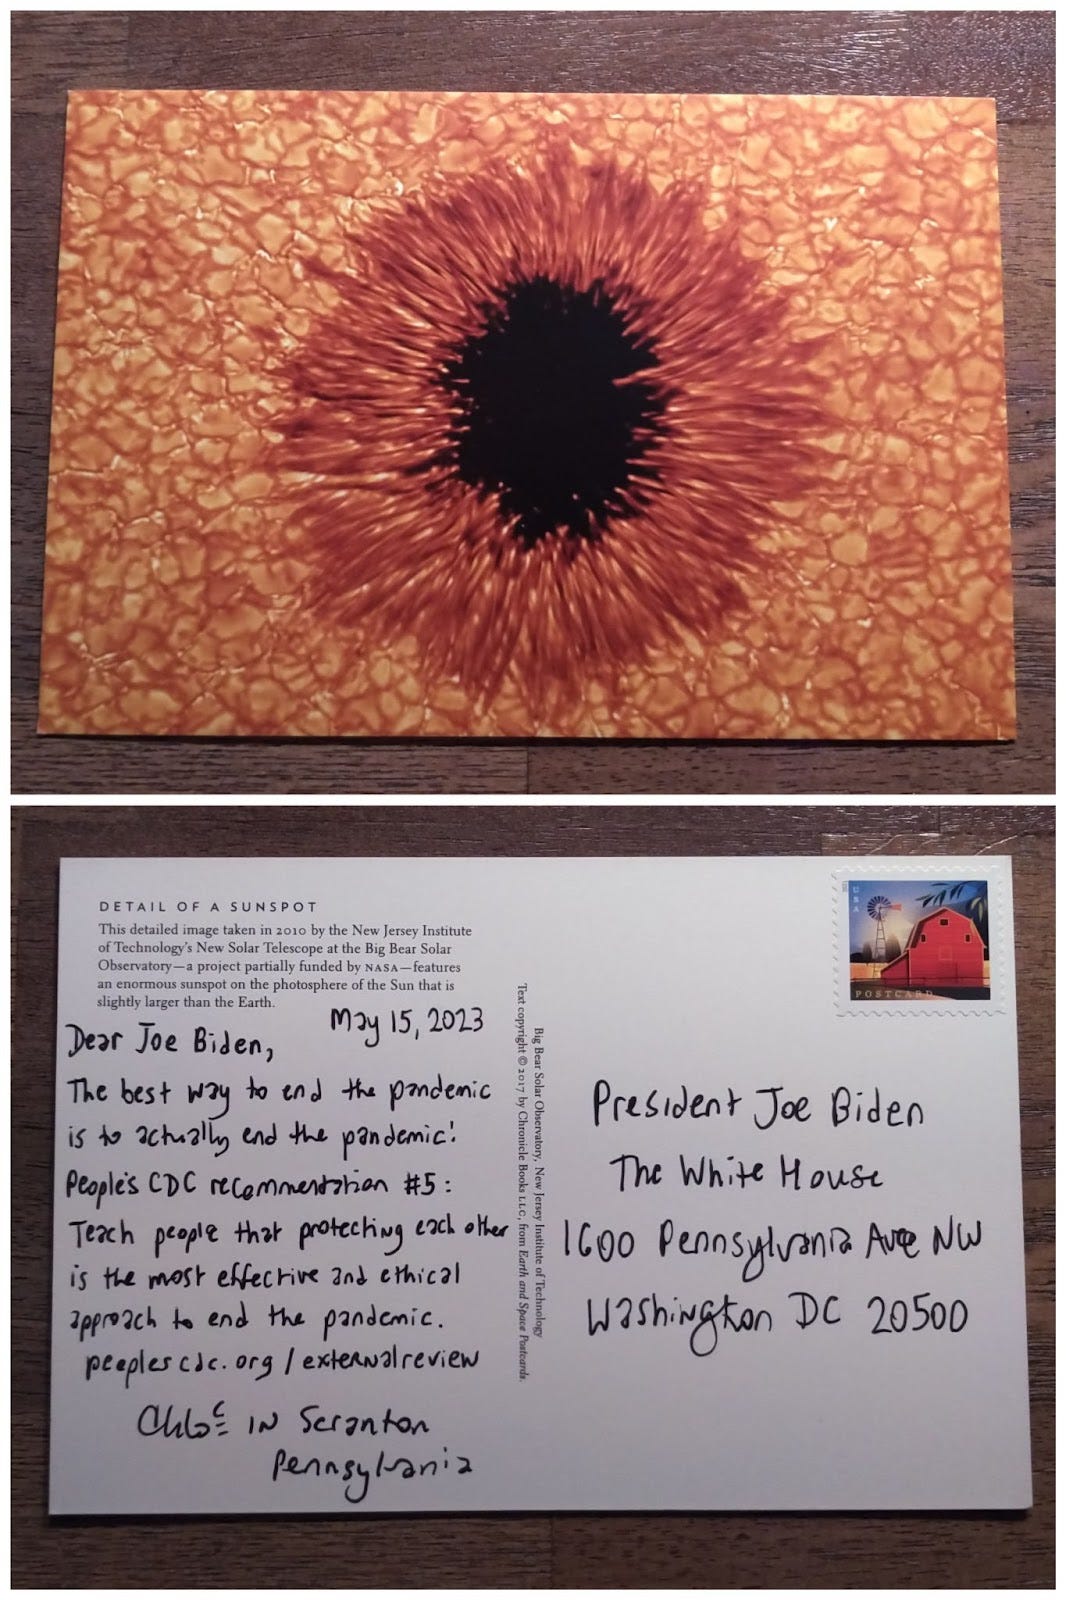 DETAIL OF A SUNSPOT
This detailed image taken in 2010 by the New Jersey Institute
of Technology's New Solar Telescope at the Big Bear Solar
Observatory—a project partially funded by NASA—features
an enormous sunspot on the photosphere of the Sun that is
slightly larger than the Earth.
May 15, 2023
Dear Joe Biden,
The best way to end the pandemic
is to actually end the pandemic!
People's CDC recommendation #5:
Teach people that protecting each other
is the most effective and ethical
approach to end the pandemic.
peoplescdc.org/externalreview
Chloe in Scranton
Pennsylvania
Big Bear Solar Observatory, New Jersey Institute of Technology
Text copyright © 2017 by Chronicle Books LLC, from Earth and Space Postcards.
USA
POSTCARD
President Joe Biden
The White House
1600 Pennsylvania Ave NW
Washington DC 20500